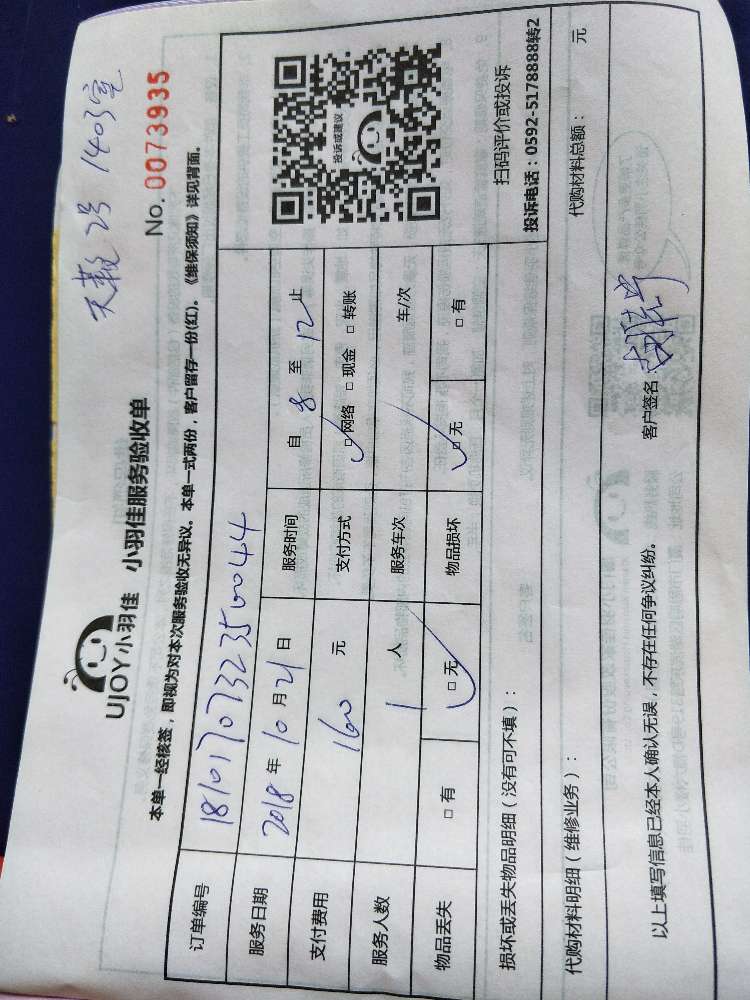 天鹭 2号 1403室
UJOY小羽佳 小羽佳服务验收单
No. 0073935
本单一经核签，即视为对本次服务验收无异议。本单一式两份，客户留存一份(红)。《维保须知》详见背面。
订单编号 1810170732350044
服务日期 2018 年 10 月 21 日 服务时间 自 8 至 12 止
支付费用 160 元 支付方式 ☑网络 □现金 □转账
服务人数 1 人 服务车次 车/次
物品丢失 □有 ☑无 物品损坏 ☑无 □有
投诉或建议
扫码评价或投诉
投诉电话：0592-5178888转2
损坏或丢失物品明细（没有可不填）：
代购材料明细（维修业务）： 代购材料总额： 元
以上填写信息已经本人确认无误，不存在任何争议纠纷。 客户签名：